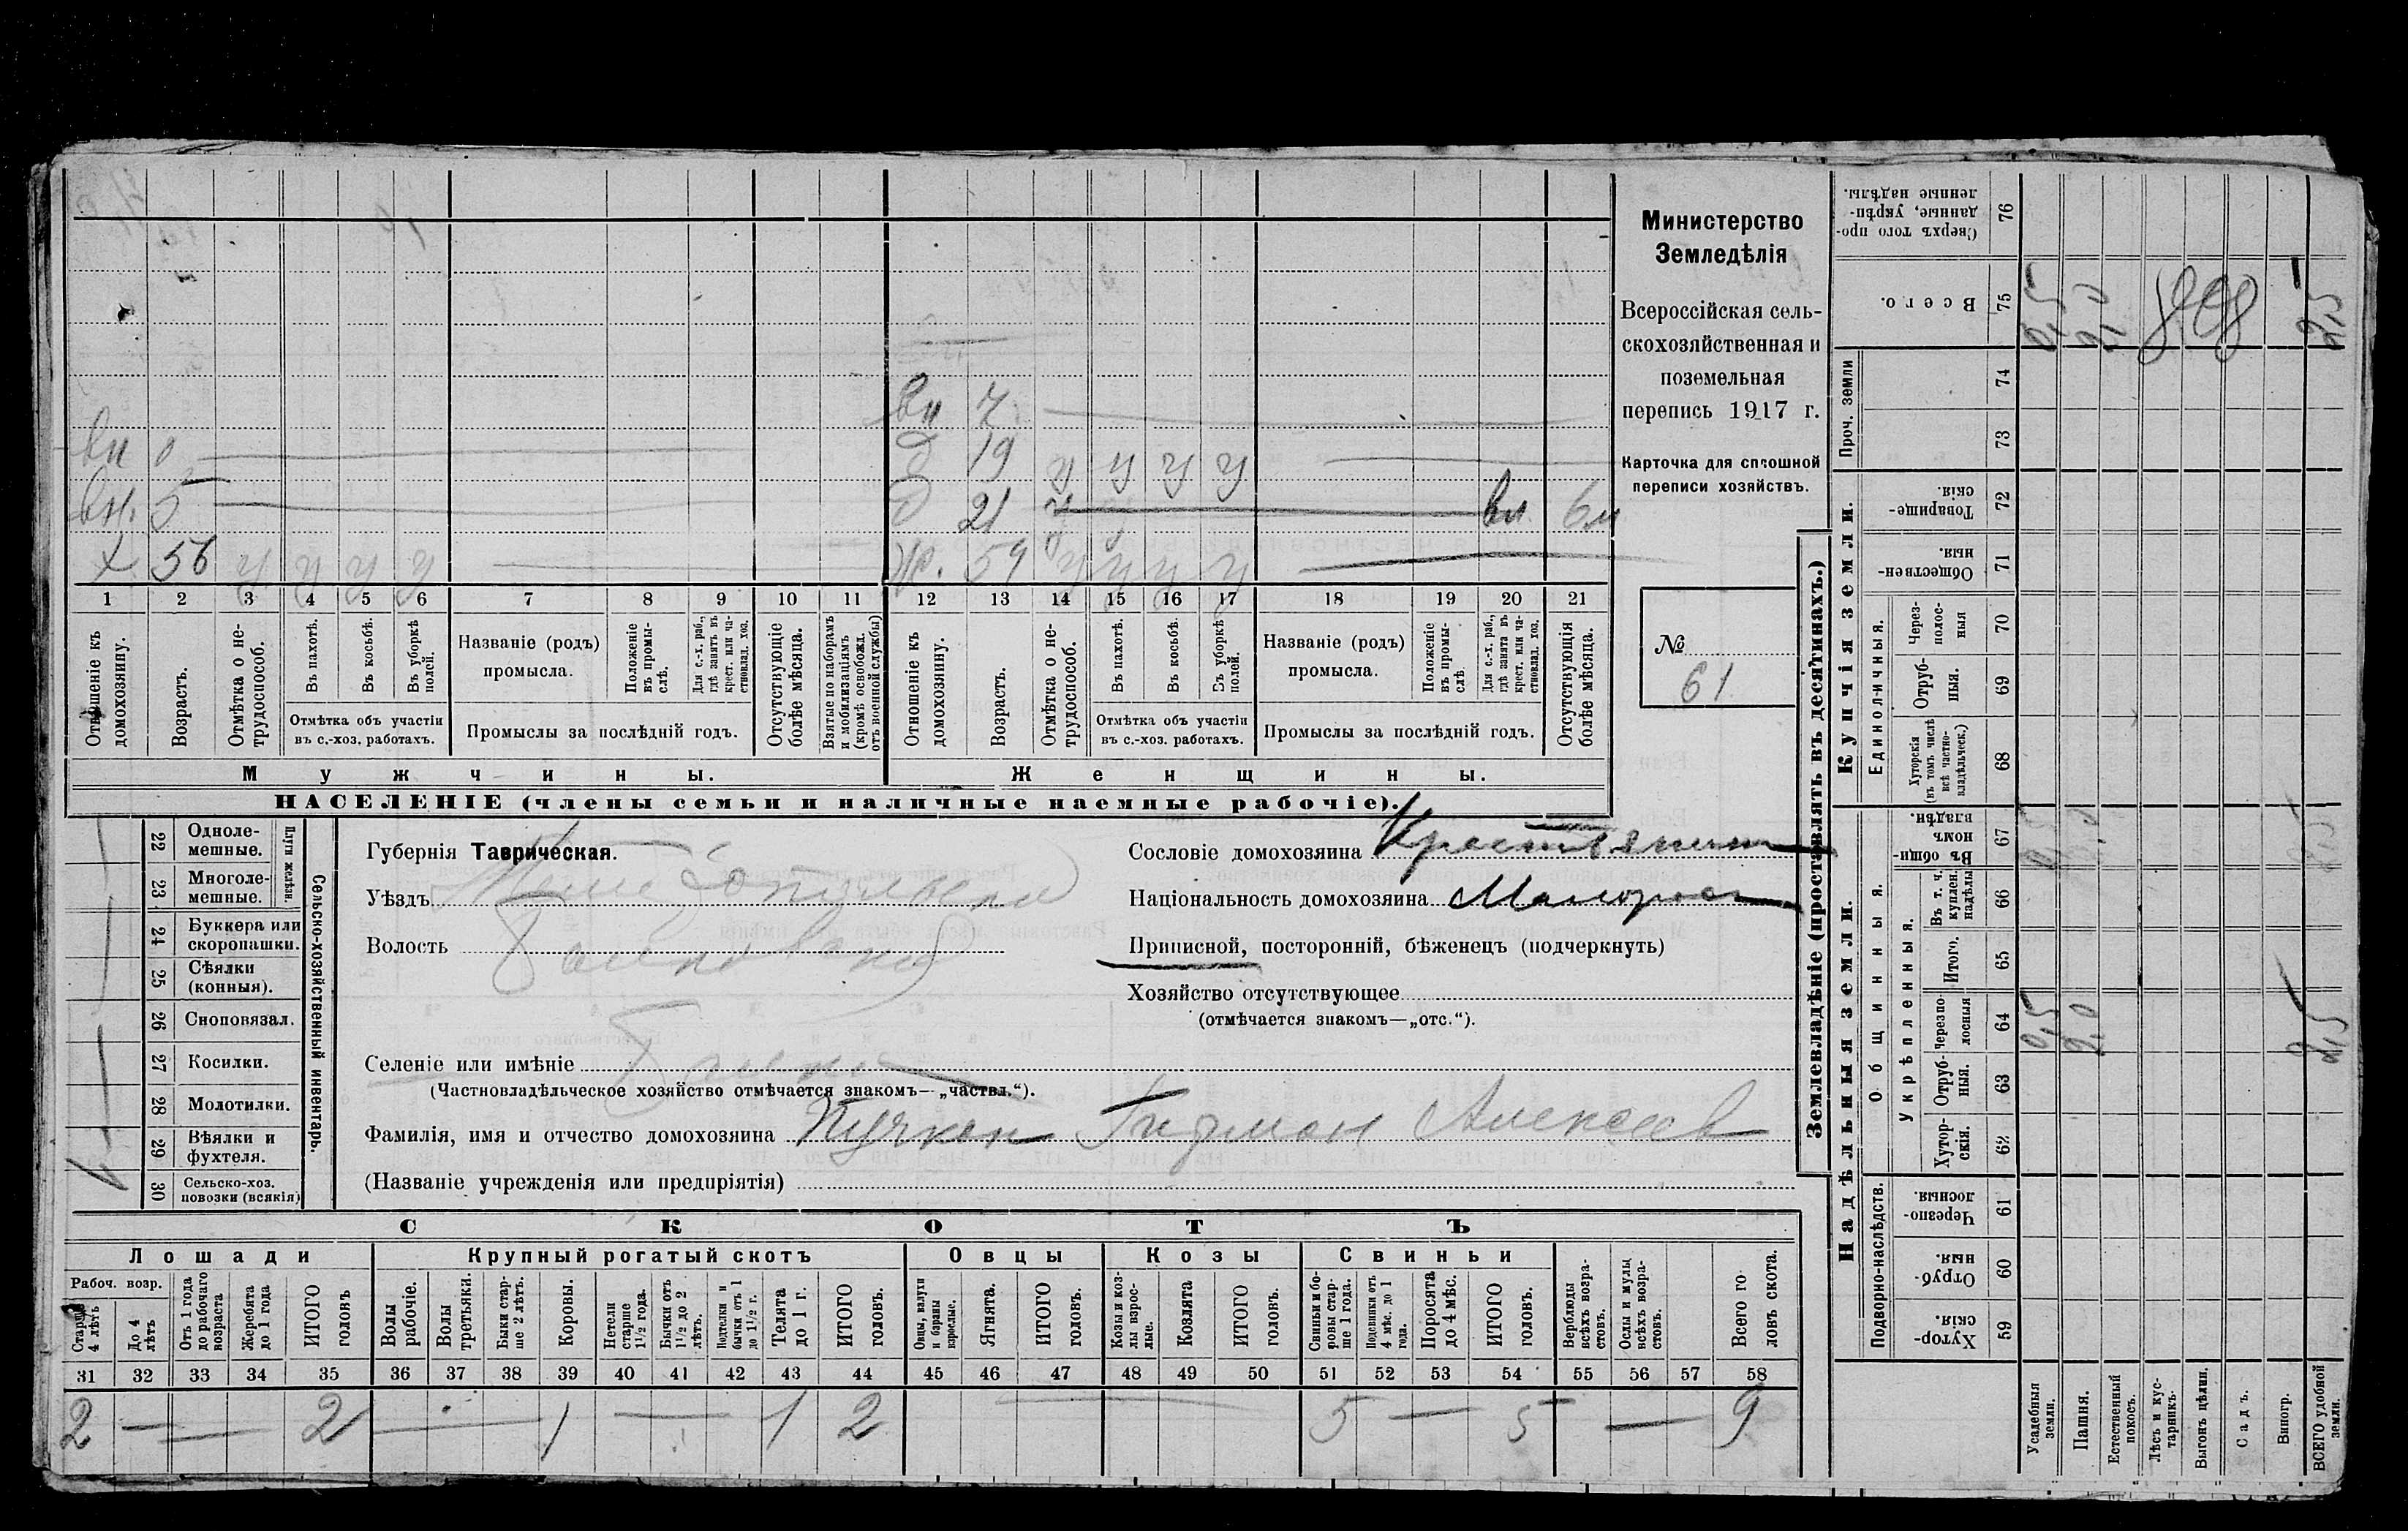 Министерство
Земледѣлія
Всероссійская сель-
скохозяйственная и
поземельная
перепись 1917 г.
Карточка для сплошной
переписи хозяйствъ.
№
61
вн 7
вн 0
д 19 у у у у
вн. 5
д 21 вл 6м
х 56 у у у у
ж. 59 у у у у
1 2 3 4 5 6 7 8 9 10 11 12 13 14 15 16 17 18 19 20 21
Отношеніе къ домохозяину.
Возрастъ.
Отмѣтка о не-трудоспособ.
Въ пахотѣ.
Въ косьбѣ.
Въ уборкѣ полей.
Отмѣтка объ участіи
въ с.-хоз. работахъ.
Названіе (родъ)
промысла.
Положеніе въ промы-слѣ.
Для с.-х. раб., гдѣ занятъ въ крест. или ча-стновлад. хоз.
Промыслы за послѣдній годъ.
Отсутствующіе болѣе мѣсяца.
Взятые по наборамъ и мобилизаціямъ (кромѣ освобожд. отъ военной службы)
Отношеніе къ домохозяину.
Возрастъ.
Отмѣтка о не-трудоспособ.
Въ пахотѣ.
Въ косьбѣ.
Въ уборкѣ полей.
Отмѣтка объ участіи
въ с.-хоз. работахъ.
Названіе (родъ)
промысла.
Положеніе въ промы-слѣ
Для с.-х. раб., гдѣ занята въ крест. или ча-стновлад. хоз.
Промыслы за послѣдній годъ.
Отсутствующія болѣе мѣсяца.
Мужчины.
Женщины.
НАСЕЛЕНІЕ (члены семьи и наличные наемные рабочіе).
Сельско-хозяйственный инвентарь.
Плуги желѣзн.
22 Одноле-мешные.
23 Многоле-мешные.
24 Буккера или скоропашки.
25 Сѣялки (конныя).
26 Сноповязал.
27 Косилки.
28 Молотилки.
29 Вѣялки и фухтеля.
30 Сельско-хоз. повозки (всякія)
Губернія Таврическая.
Уѣздъ Мелитопольский
Волость
Селеніе или имѣніе
(Частновладѣльческое хозяйство отмѣчается знакомъ—„частвл.“).
Фамилія, имя и отчество домохозяина Пучкан Алексеев
(Названіе учрежденія или предпріятія)
Сословіе домохозяина Крестьянин
Національность домохозяина Малоросс
Приписной, посторонній, бѣженецъ (подчеркнуть)
Хозяйство отсутствующее
(отмѣчается знакомъ—„отс.“).
СКОТЪ
Лошади
Крупный рогатый скотъ
Овцы
Козы
Свиньи
Рабоч. возр.
Старше 4 лѣтъ
До 4 лѣтъ
Отъ 1 года до рабочаго возраста
Жеребята до 1 года
ИТОГО головъ
Волы рабочіе.
Волы третьяки.
Быки стар-ше 2 лѣтъ.
Коровы.
Нетели старше 1½ года.
Бычки отъ 1½ до 2 лѣтъ.
Подтелки и бычки отъ 1 до 1½ г.
Телята до 1 г.
ИТОГО головъ.
Овцы, валухи и бараны взрослые.
Ягнята.
ИТОГО головъ.
Козы и коз-лы взрос-лые.
Козлята
ИТОГО головъ.
Свиньи и бо-ровы стар-ше 1 года.
Подсвинки отъ 4 мѣс. до 1 года.
Поросята до 4 мѣс.
ИТОГО головъ.
Верблюды всѣхъ возра-стовъ.
Ослы и мулы всѣхъ возра-стовъ.
Всего го-ловъ скота.
31 32 33 34 35 36 37 38 39 40 41 42 43 44 45 46 47 48 49 50 51 52 53 54 55 56 57 58
2 — — 2 — 1 — 1 2 — 5 — 5 — 9
Землевладѣніе (проставлять въ десятинахъ.)
Купчія земли.
Надѣльныя земли.
Проч. земли
Единоличныя.
Общинныя.
Укрѣпленныя.
Подворно-наслѣдств.
Сверхъ того про-данные, укрѣп-ленные надѣлы. 76
Всего. 75 0,5 2,0 2,5
74
73
Товарище-скія. 72
Обществен-ныя. 71
Через-полос-ныя 70
Отруб-ныя. 69
Хуторскія (въ томъ числѣ всѣ частно-владѣльческ.) 68
Въ общин-номъ владѣн. 67
Въ т. ч. куплен. надѣлы 66
Итого. 65
Черезпо-лосныя 64 0,5 2,0 2,5
Отруб-ныя. 63
Хутор-скія. 62
Черезпо-лосныя. 61
Отруб-ныя. 60
Хутор-скія. 59
Усадебныя земли.
Пашня.
Естественный покосъ.
Лѣсъ и кус-тарникъ.
Выгонъ цѣлин.
Садъ.
Виногр.
ВСЕГО удобной земли.